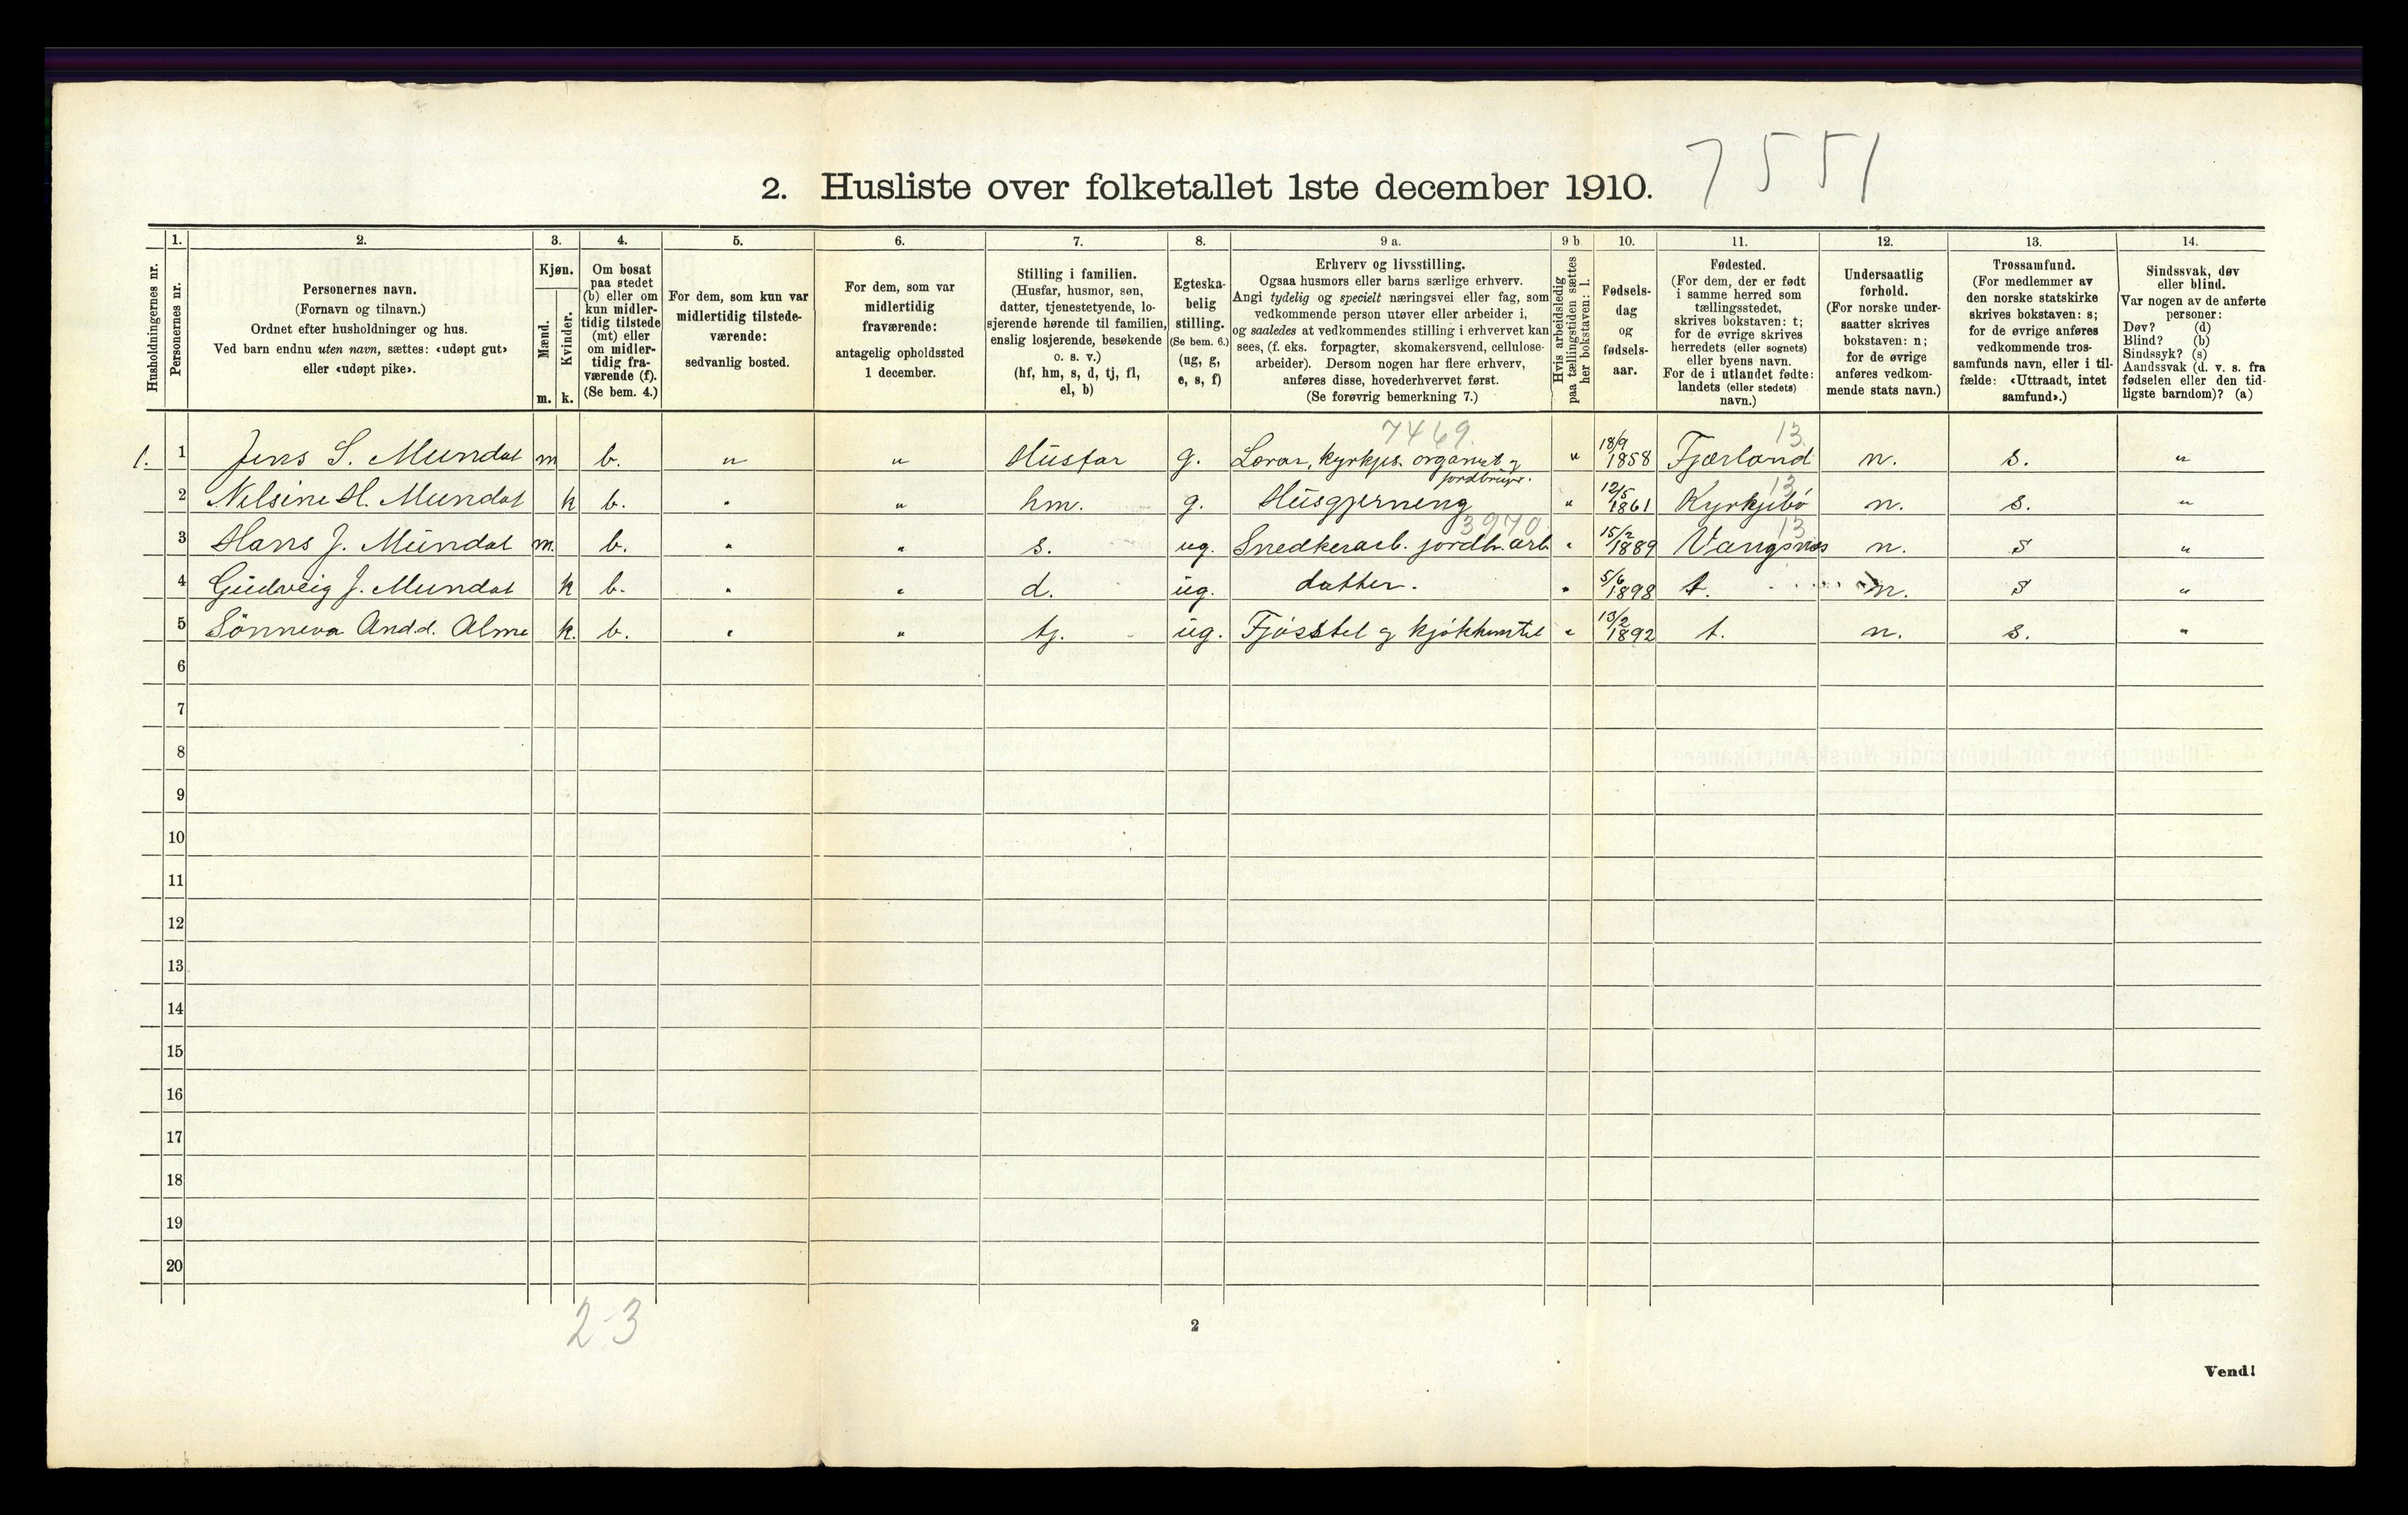 7551
2. Husliste over folketallet 1ste december 1910.
Husholdningernes nr.
1.
Personernes nr.
2.
Personernes navn.
(Fornavn og tilnavn.)
Ordnet efter husholdninger og hus.
Ved barn endnu uten navn, sættes: «udøpt gut»
eller «udøpt pike».
3.
Kjøn.
Mænd.
Kvinder.
m. k.
4.
Om bosat
paa stedet
(b) eller om
kun midler-
tidig tilstede
(mt) eller
om midler-
tidig fra-
værende (f).
(Se bem. 4.)
5.
For dem, som kun var
midlertidig tilstede-
værende:
sedvanlig bosted.
6.
For dem, som var
midlertidig
fraværende:
antagelig opholdssted
1 december.
7.
Stilling i familien.
(Husfar, husmor, søn,
datter, tjenestetyende, lo-
sjerende hørende til familien,
enslig losjerende, besøkende
o. s. v.)
(hf, hm, s, d, tj, fl,
el, b)
8.
Egteska-
belig
stilling.
(Se bem. 6.)
(ug, g,
e, s, f)
9 a.
Erhverv og livsstilling.
Ogsaa husmors eller barns særlige erhverv.
Angi tydelig og specielt næringsvei eller fag, som
vedkommende person utøver eller arbeider i,
og saaledes at vedkommendes stilling i erhvervet kan
sees, (f. eks. forpagter, skomakersvend, cellulose-
arbeider). Dersom nogen har flere erhverv,
anføres disse, hovederhvervet først.
(Se forøvrig bemerkning 7.)
9 b
Hvis arbeidsledig
paa tællingstiden sættes
her bokstaven: l.
10.
Fødsels-
dag
og
fødsels-
aar.
11.
Fødested.
(For dem, der er født
i samme herred som
tællingsstedet,
skrives bokstaven: t;
for de øvrige skrives
herredets (eller sognets)
eller byens navn.
For de i utlandet fødte:
landets (eller stedets)
navn.)
12.
Undersaatlig
forhold.
(For norske under-
saatter skrives
bokstaven: n;
for de øvrige
anføres vedkom-
mende stats navn.)
13.
Trossamfund.
(For medlemmer av
den norske statskirke
skrives bokstaven: s;
for de øvrige anføres
vedkommende tros-
samfunds navn, eller i til-
fælde: «Uttraadt, intet
samfund».)
14.
Sindssvak, døv
eller blind.
Var nogen av de anførte
personer:
Døv? (d)
Blind? (b)
Sindssyk? (s)
Aandssvak (d. v. s. fra
fødselen eller den tid-
ligste barndom)? (a)
7469. 13.
1. 1 Jens S. Mundal m b. " " Husfar g. Lærar, kyrkjes. organist og jordbrukr. " 18/9 1858 Fjærland n. s. "
13
2 Nilsine H. Mundal k b. " " hm. g. Husgjerning " 12/5 1861 Kyrkjebö n. s. "
3970. 13
3 Hans J. Mundal m. b. " " s. ug. Snedkerarb. jordbr. arb " 15/2 1889 Vangsnes n. s "
4 Gudveig J. Mundal k b. " " d. ug. datter. " 5/6 1898 t. n. s "
5 Sönneva And.d. Alme k. b. " " tj. ug. Fjósstel og kjökkenstel " 13/2 1892 t. n. s. "
6
7
8
9
10
11
12
13
14
15
16
17
18
19
20
2-3
2
Vend!